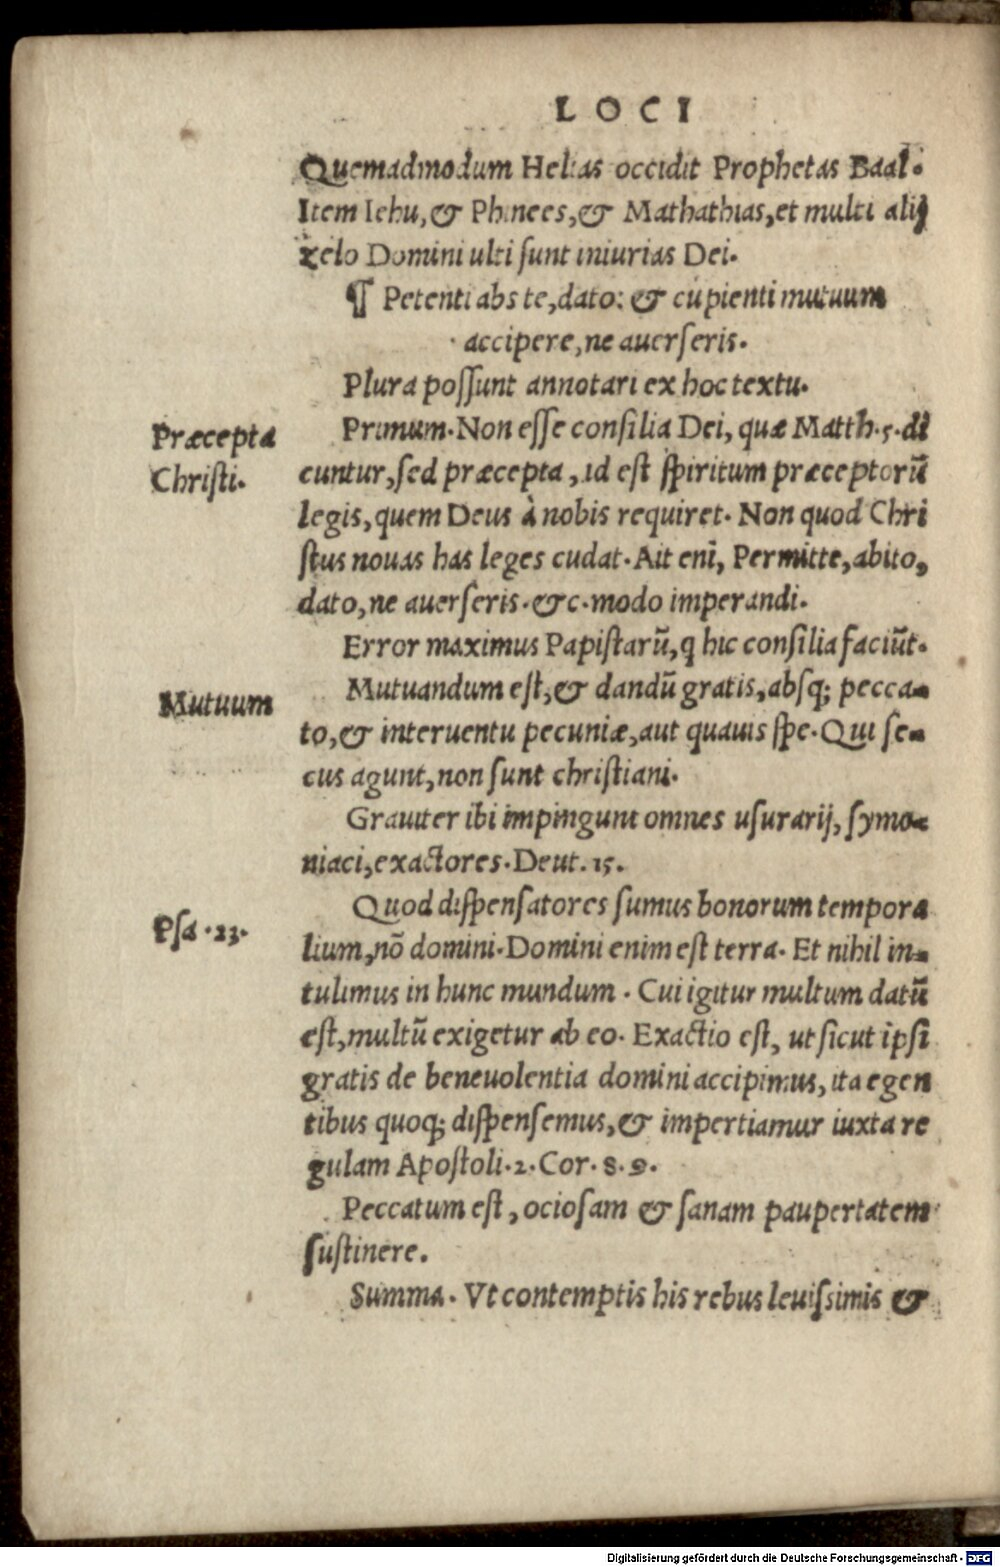 LOCI
Quemadmodum Helias occidit Prophetas Baal.
Item Iehu, & Phinees, & Mathathias, et multi alij
zelo Domini ulti sunt iniurias Dei.
¶ Petenti abs te, dato: & cupienti mutuum
accipere, ne auerseris.
Plura possunt annotari ex hoc textu.
Præcepta
Christi.
Primum. Non esse consilia Dei, quæ Matth. 5. di
cuntur, sed præcepta, id est spiritum præceptorū
legis, quem Deus à nobis requiret. Non quod Chri
stus nouas has leges cudat. Ait enī, Permitte, abito,
dato, ne auerseris. &c. modo imperandi.
Error maximus Papistarū, q hic consilia faciūt.
Mutuum
Mutuandum est, & dandū gratis, absq; pecca-
to, & interuentu pecuniæ, aut quauis spe. Qui se-
cus agunt, non sunt christiani.
Grauiter ibi impingunt omnes usurarij, symo-
niaci, exactores. Deut. 15.
Psa. 23.
Quod dispensatores sumus bonorum tempora
lium, nō domini. Domini enim est terra. Et nihil in-
tulimus in hunc mundum. Cui igitur multum datū
est, multū exigetur ab eo. Exactio est, ut sicut ipsi
gratis de beneuolentia domini accipimus, ita egen
tibus quoq; dispensemus, & impertiamur iuxta re
gulam Apostoli. 2. Cor. 8. 9.
Peccatum est, ociosam & sanam paupertatem
sustinere.
Summa. Vt contemptis his rebus leuissimis &
Digitalisierung gefördert durch die Deutsche Forschungsgemeinschaft - DFG